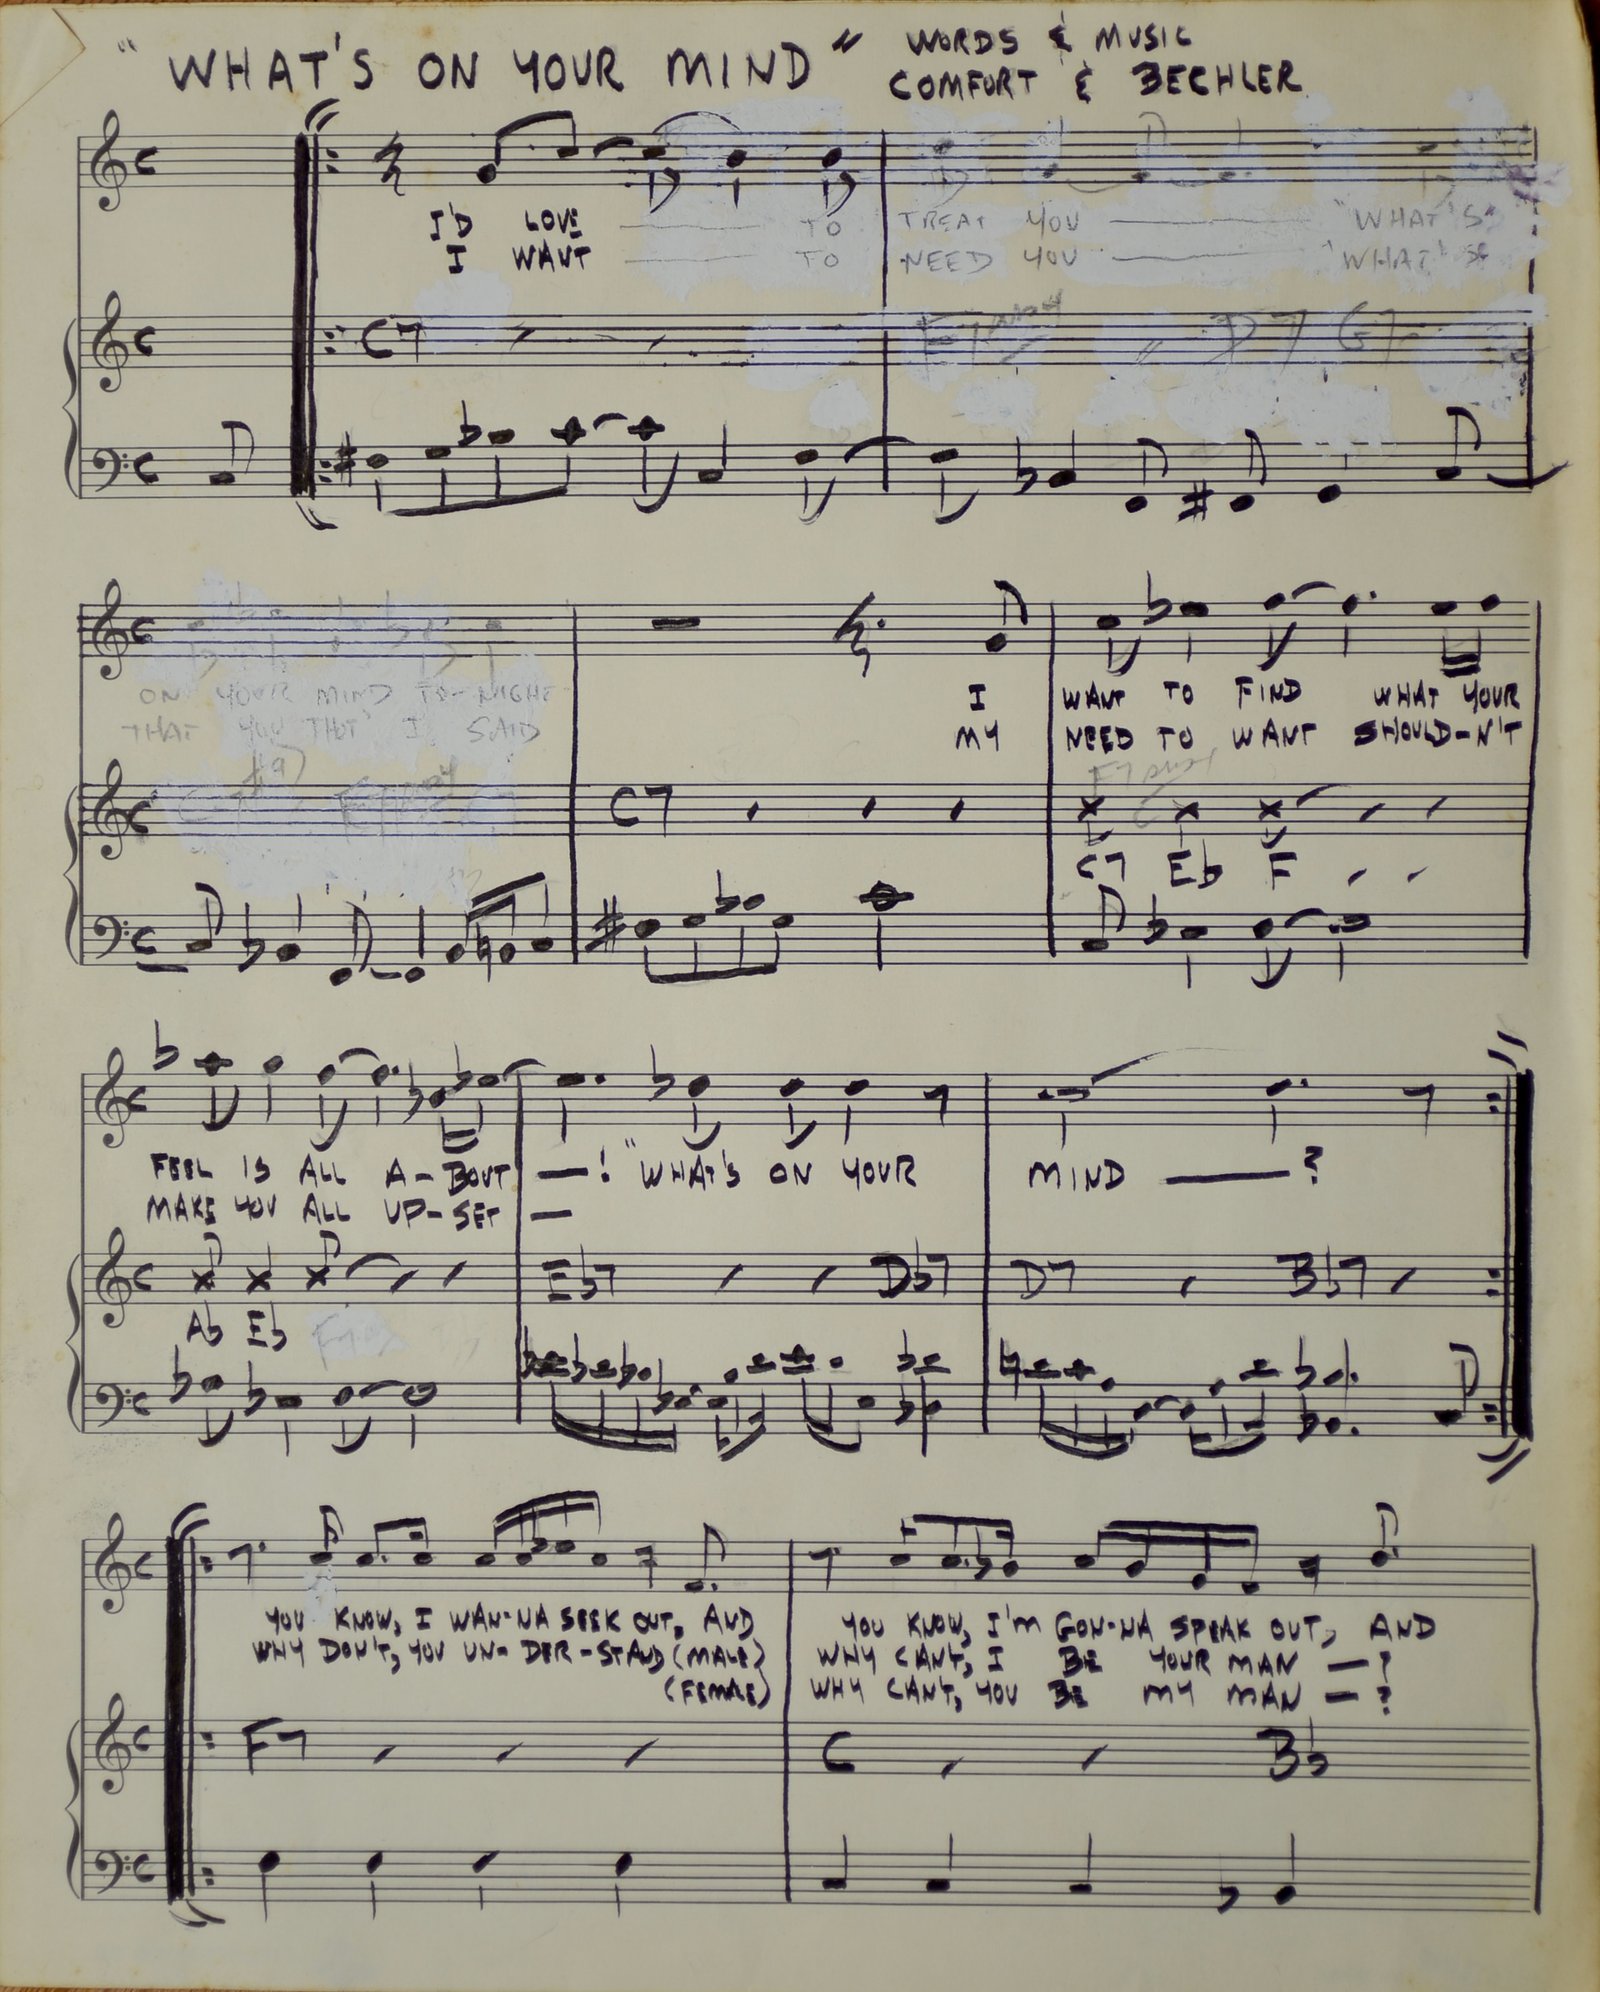 "WHAT'S ON YOUR MIND" WORDS & MUSIC
COMFORT & BECHLER
I'D LOVE — TO TREAT YOU — "WHAT'S
I WANT — TO NEED YOU — "WHAT'S
C7 F7 D7 G7
ON YOUR MIND TO-NIGHT I WANT TO FIND WHAT YOUR
THAT YOU THOT I SAID MY NEED TO WANT SHOULD-N'T
C7 F7
C7 Eb F
FEEL IS ALL A-BOUT —! "WHAT'S ON YOUR MIND —?
MAKE YOU ALL UP-SET —
Eb7 Db7 D7 Bb7
Ab Eb
YOU KNOW, I WAN-NA SEEK OUT, AND YOU KNOW, I'M GON-NA SPEAK OUT, AND
WHY DON'T, YOU UN-DER-STAND (MALE) WHY CAN'T, I BE YOUR MAN —?
(FEMALE) WHY CAN'T, YOU BE MY MAN —?
F7 C Bb